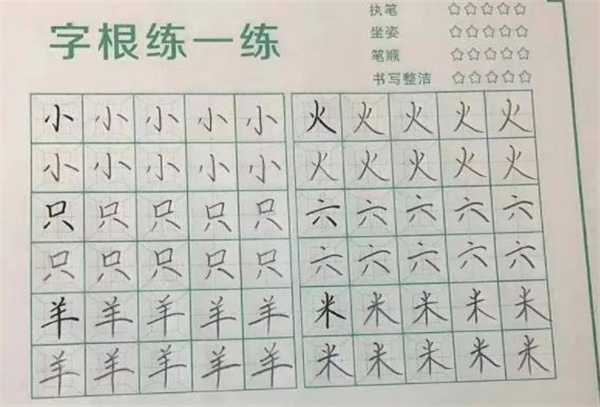 字根练一练
执笔 ☆☆☆☆☆
坐姿 ☆☆☆☆☆
笔顺 ☆☆☆☆☆
书写整洁 ☆☆☆☆☆
小小小小小 火火火火火
小小小小小 火火火火火
只只只只只 六六六六六
只只只只只 六六六六六
羊羊羊羊羊 米米米米米
羊羊羊羊羊 米米米米米